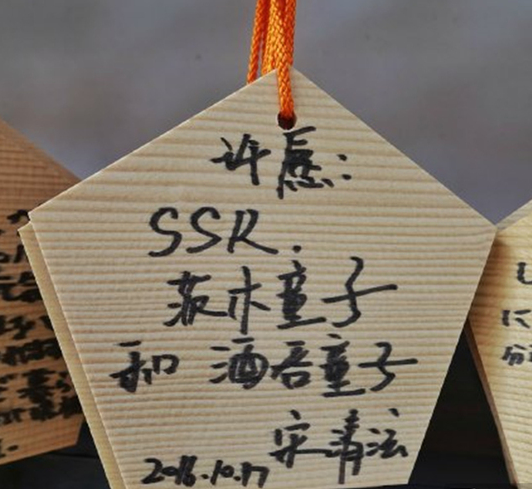 许愿:
SSR.
茨木童子
和 酒吞童子
宋清泫
2016.10.17